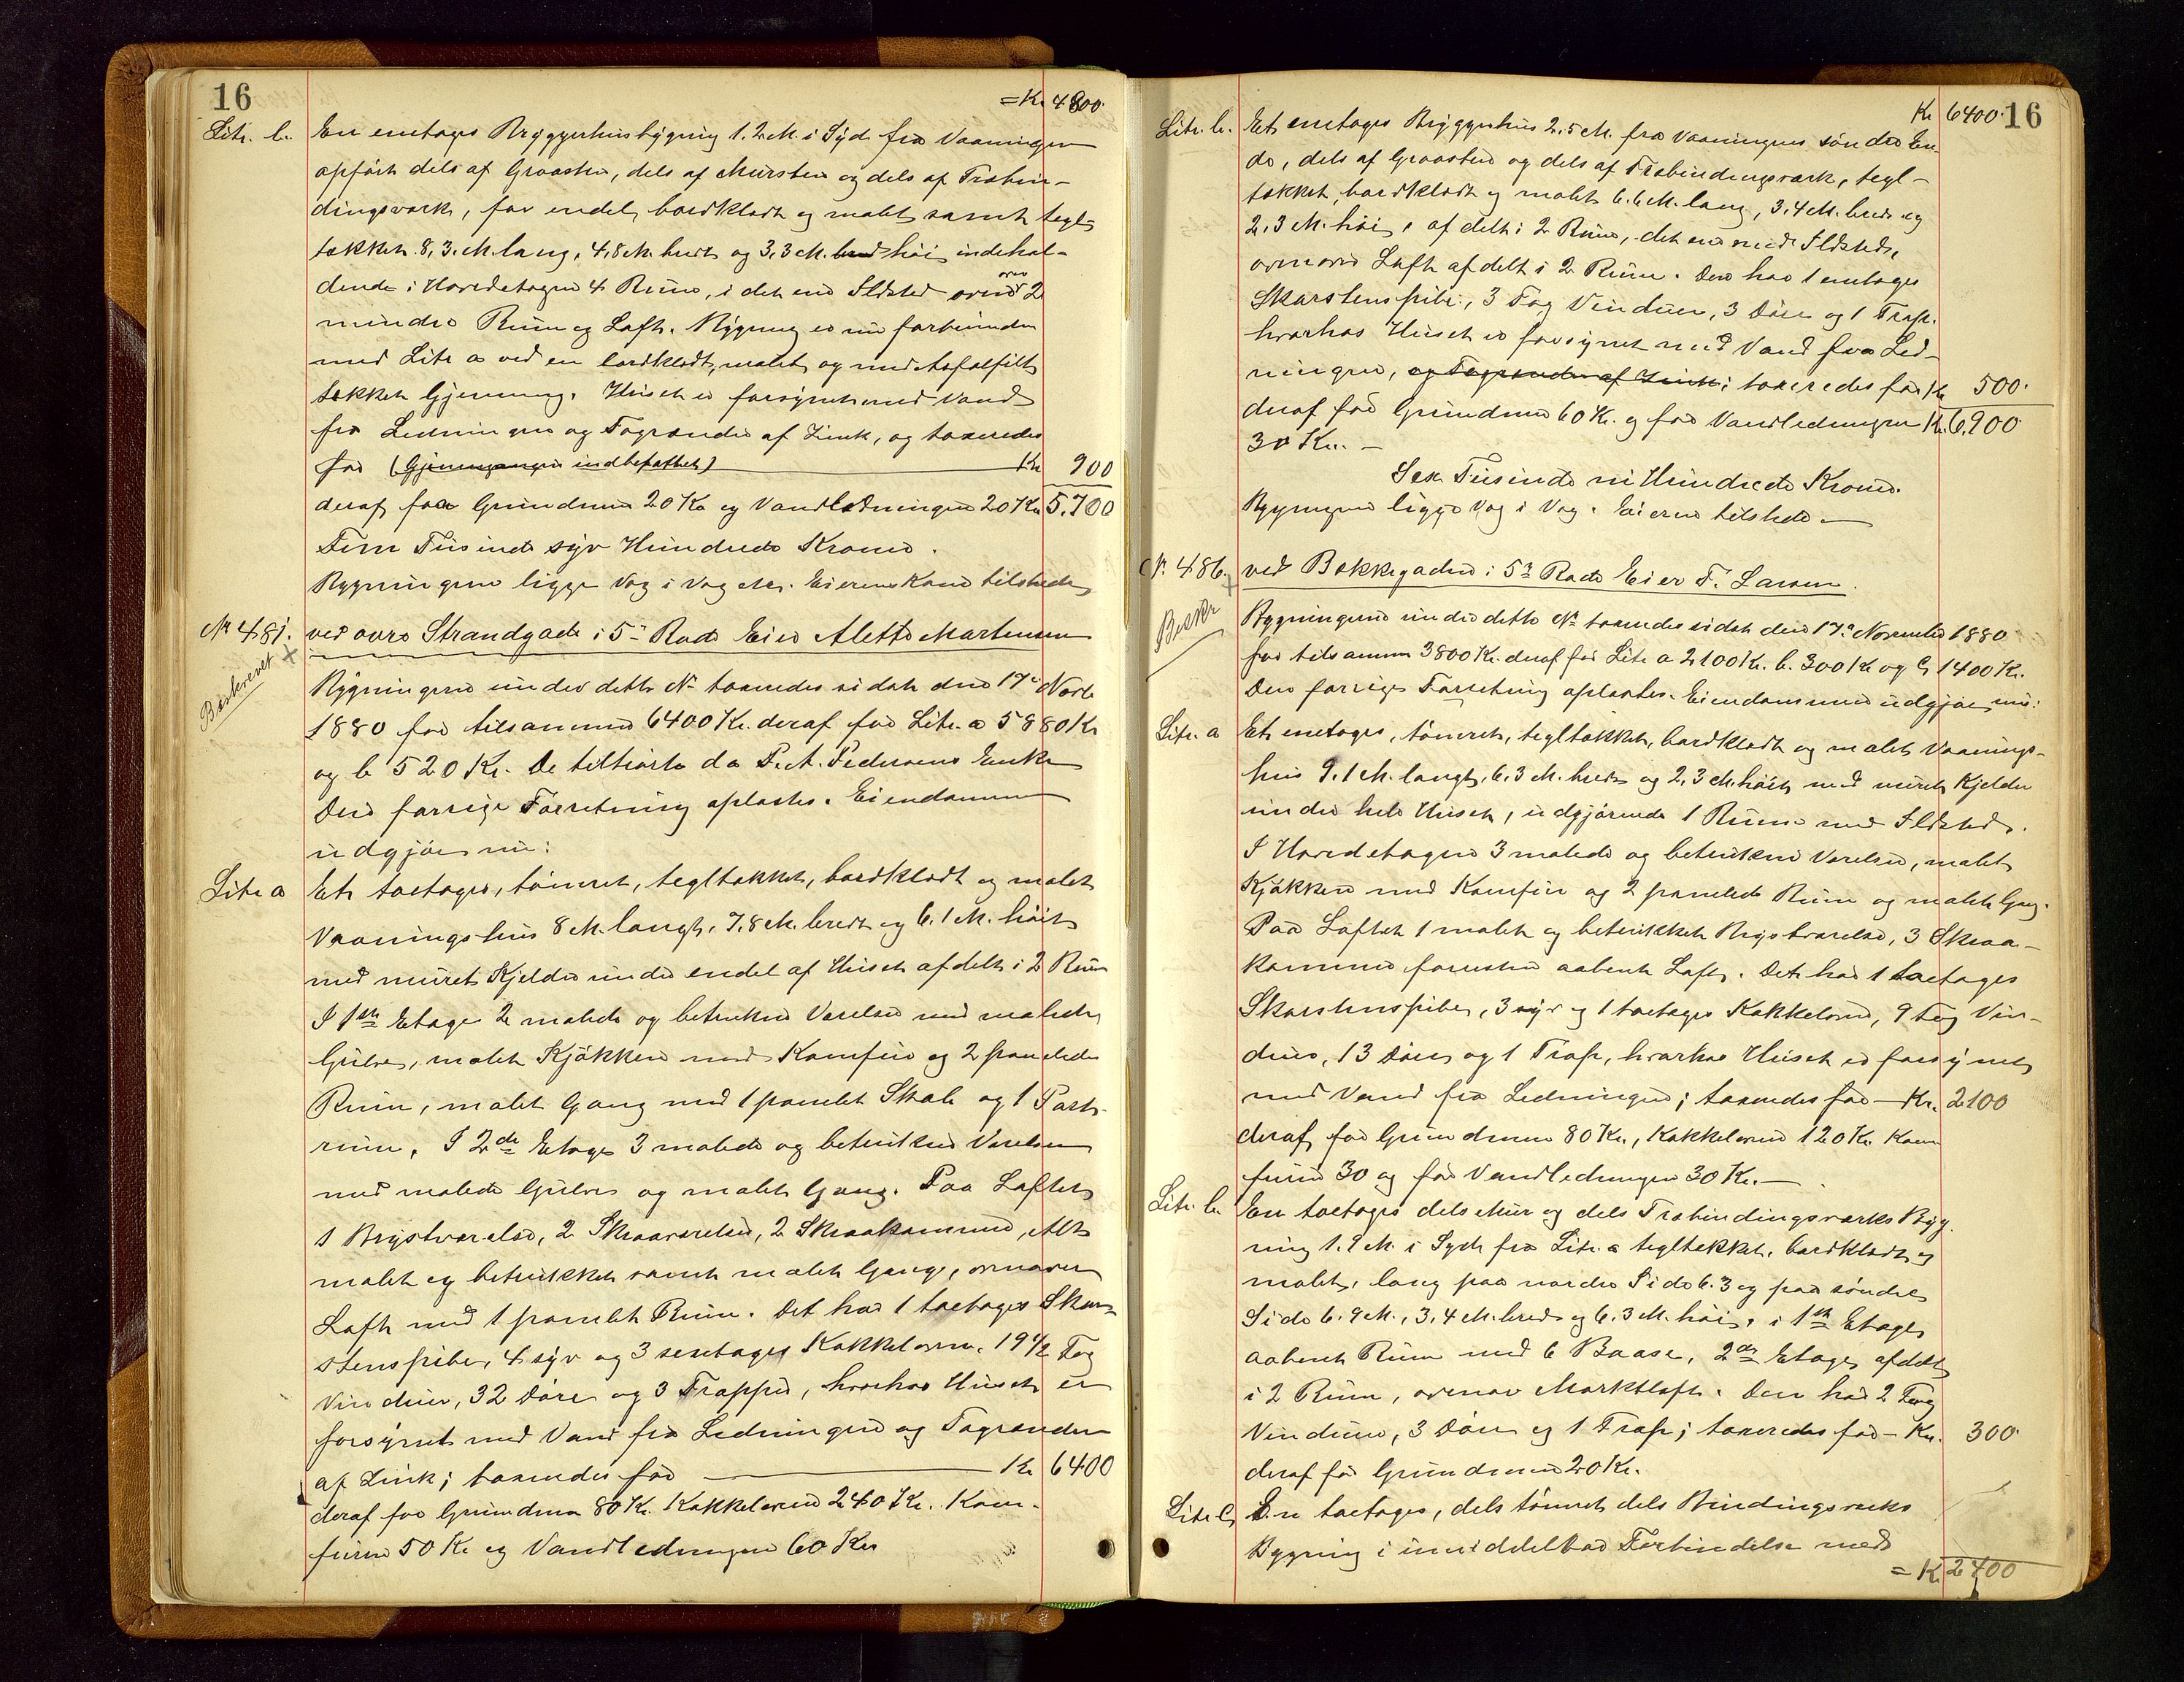 16
=Kr 4800.
Litr. b. En enetages Bryggerhusbygning 1.2 M. i Syd fra Vaaningen
opført dels af Graasten, dels af Mursten og dels af Træbin-
dingsværk, for endel bordklædt og malet samt tegl-
tækket. 8,3. M. lang, 4,8 M. bredt og 3,3 M. bred høi indehol-
dende i Hovedetagen 4 Rum, i det ene Ildsted oven over 2
mindre Rum og Loft. Bygning er nu forbunden
med Litr a ved en bordklædt, malet og med Asfaltfilt
tækket Gjennemg. Huset er forsynet med Vand
fra Ledningen og Tagrender af Zink, og taxeredes
for (Gjennemgangen indbefattet) Kr 900
deraf for Grundmur 20 Kr og Vandledningen 20 Kr 5.700
Fem Tusinde syv Hundrede Kroner.
Bygningerne ligge Væg i Væg etc. Eierens Kone tilstede
Nr 481. ved øvre Strandgade i 5te Rode Eier Alette Martensen
Beskrevet
Bygningerne under dette Nr taxeredes sidst den 17de Novbr
1880 for tilsammen 6400 Kr. deraf for Litr. a 5880 Kr
og b 520 Kr. De tilhørte da P. A. Pedersens Enke
Den forrige Forretning oplæstes. Eiendommen
udgjør nu:
Litr a Et toetages, tømret, tegltækket, bordklædt og malet
Vaaningshus 8 M. langt, 7,8 M. bredt og 6.1 M. høit
med muret Kjelder under endel af Huset afdelt i 2 Rum
I 1ste Etage 2 malede og betrukne Værelser med malede
Gulve, malet Kjøkken med Komfur og 2 panelede
Rum, malet Gang med 1 panelet Skab og 1 Port-
rum. I 2den Etage 3 malede og betrukne Værelser
med malede Gulve og malet Gang. Paa Loftet
1 Brystværelse, 2 Skraaværelser, 2 Skraakammere, Alt
malet og betrukket samt malet Gang, ovenover
Loft med 1 panelet Rum. Det har 1 toetages Skor-
stenspibe, 4 syv og 3 sexetages Kakkelovne, 19 1/2 Fag
Vinduer, 32 Døre og 3 Trapper, hvorhos Huset er
forsynet med Vand fra Ledningen og Tagrender
af Zink; taxeredes for Kr 6400
deraf for Grundmur 80 Kr. Kakkelovne 240 Kr. Kom-
furer 50 Kr og Vandledningen 60 Kr
Kr 6400. 16
Litr. b. Et enetages Bryggerhus 2,5 M. fra Vaaningens søndre En-
de, dels af Graasten og dels af Træbindingsværk, tegl-
tækket, bordklædt og malet 6.6 M. lang, 3,4 M. bred og
2,3 M. høi, afdelt i 2 Rum, det ene med Ildsted,
ovenover Loft afdelt i 2 Rum. Den har 1 enetages
Skorstenspibe, 3 Fag Vinduer, 3 Døre og 1 Trap.
hvorhos Huset er forsynet med Vand fra Led-
ningen, og Tagrender af Zink; taxeredes for Kr 500.
deraf for Grundmur 60 Kr. og for Vandledningen Kr. 6.900
30 Kr. –
Sex Tusinde ni Hundrede Kroner.
Bygningerne ligge Væg i Væg. Eieren tilstede. –
Nr. 486. ved Bakkegaden i 5te Rode Eier F. Larsen.
Beskr
Bygningerne under dette Nr taxeredes sidst den 17de November 1880
for tilsammen 3800 Kr. deraf for Litr a 2100 Kr. b. 300 Kr og C, 1400 Kr.
Den forrige Forretning oplæstes. Eiendommen udgjør nu:
Litr. a Et enetages, tømret, tegltækket, bordklædt og malet Vaanings-
hus 9.1 M. langt, 6.3 M. bredt og 2,3 M. høit med muret Kjelder
under hele Huset, udgjørende 1 Rum med Ildsted.
I Hovedetagen 3 malede og betrukne Værelser, malet
Kjøkken med Komfur og 2 panelede Rum og malet Gang.
Paa Loftet 1 malet og betrukket Brystværelse, 3 Skraa-
kammere forresten aabent Loft. Det har 1 toetages
Skorstenspibe, 3 syv og 1 toetages Kakkelovn, 9 Fag Vin-
duer, 13 Døre og 1 Trap, hvorhos Huset er forsynet
med Vand fra Ledningen; taxeredes for – Kr. 2100
deraf for Grundmur 80 Kr., Kakkelovne 120 Kr. Kom
furer 30 og for Vandledningen 30 Kr. –
Litr. b. En toetages dels Mur og dels Træbindingsværks Byg-
ning 1.9 M. i Syd fra Litr. a tegltækket, bordklædt og
malet, lang paa nordre Side 6.3 og paa søndre
Side 6.9 M., 3,4 M. bred og 6.3 M. høi, i 1ste Etage
aabent Rum med 6 Baase, 2den Etage afdelt
i 2 Rum, ovenover Mørktloft. Den har 2 Fag
Vinduer, 3 Døre og 1 Trap; taxeredes for – Kr. 300.
deraf for Grundmur 20 Kr.
Litr C, En toetages, dels tømret dels Bindingsverks
Bygning i umiddelbar Forbindelse med
= Kr 2400